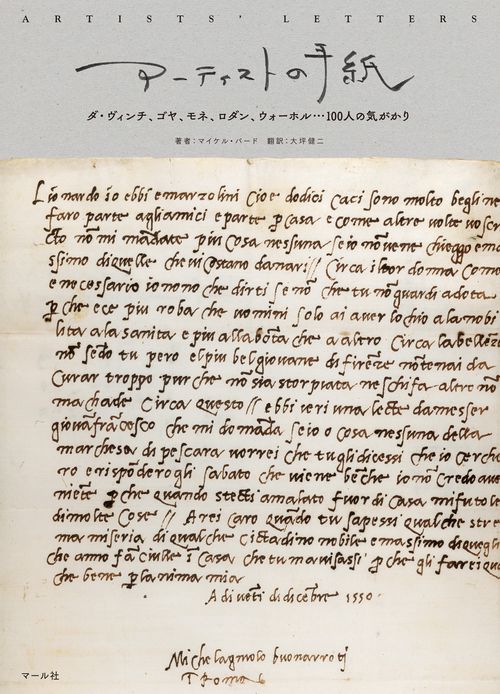 ARTISTS' LETTERS
アーティストの手紙
ダ・ヴィンチ、ゴヤ、モネ、ロダン、ウォーホル…100人の気がかり
著者:マイケル・バード 翻訳:大坪健二
Lionardo io ebbi e marzolini cioe dodici caci sono molto begli ne
faro parte agli amici e parte p casa e come altre volte vo scr
cto nō mi mādate piu cosa nessuna se io nō ve ne chieggo e ma
ssimo di quelle che vi costano danari // Circa il tor donna come
e necessario io non o che dirti se nō che tu nō guardi a dota
p che ece piu roba che uomini solo ai aver lochio a la nobi
lita a la sanita e piu alla bōta che a altro Circa la belleze
nō sēdo tu pero el piu bel giovane di firēze nō te n ai da
curar troppo pur che nō sia storpiata ne schifa altro nō
m achade Circa questo // ebbi ieri una lecte da messer
giovāfrācesco che mi domāda se io o cosa nessuna della
marchesa di pescara vorrei che tu gli dicessi che io cerche
ro e rispōderogli sabato che viene bēche io nō credo aver
niēte p che quādo stecti amalato fuor di casa mi fu tole
di molte cose // Arei caro quādo tu sapessi qualche stre
ma miseria di qualche cictadino nobile e massimo di quegli
che anno fāciulle ī casa che tu m avisassi p che gli farei qua
che bene p la nima mia
A di vēti di dicēbre 1550
Michelagniolo buonarroti
ī Roma
マール社